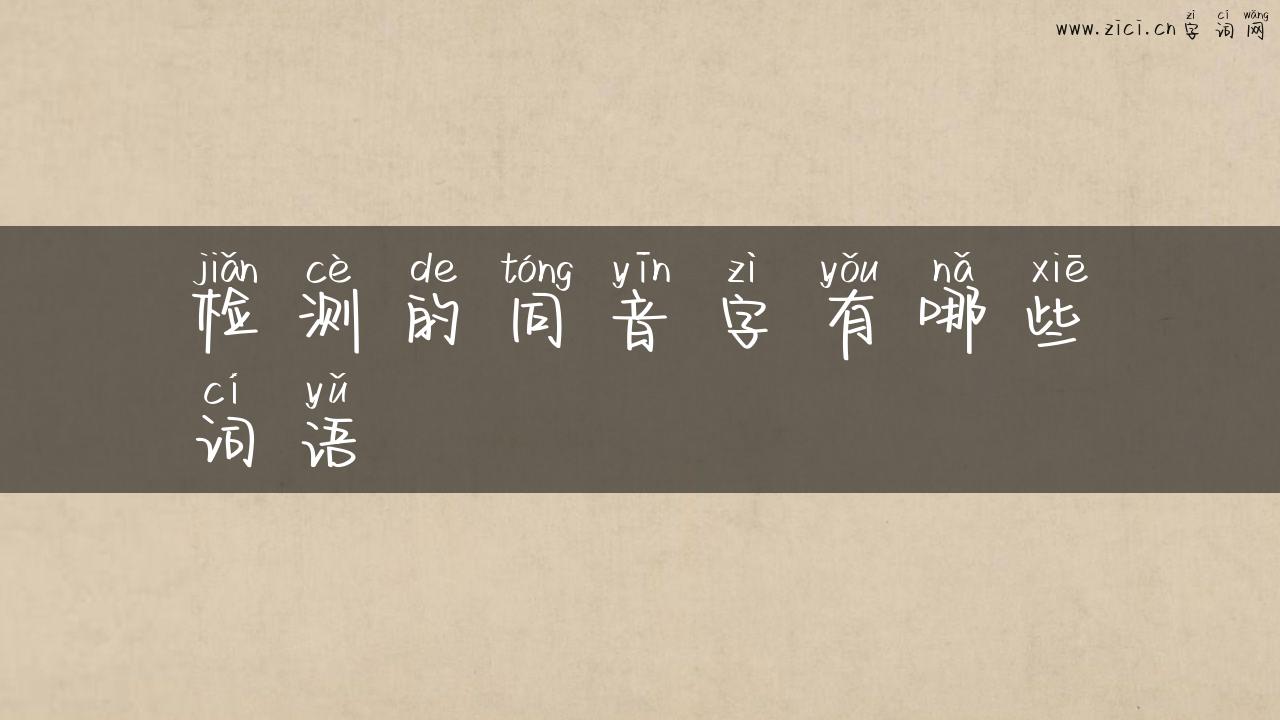 zì cí wǎng
www.zici.cn 字词网
jiǎn cè de tóng yīn zì yǒu nǎ xiē
检测的同音字有哪些
cí yǔ
词语